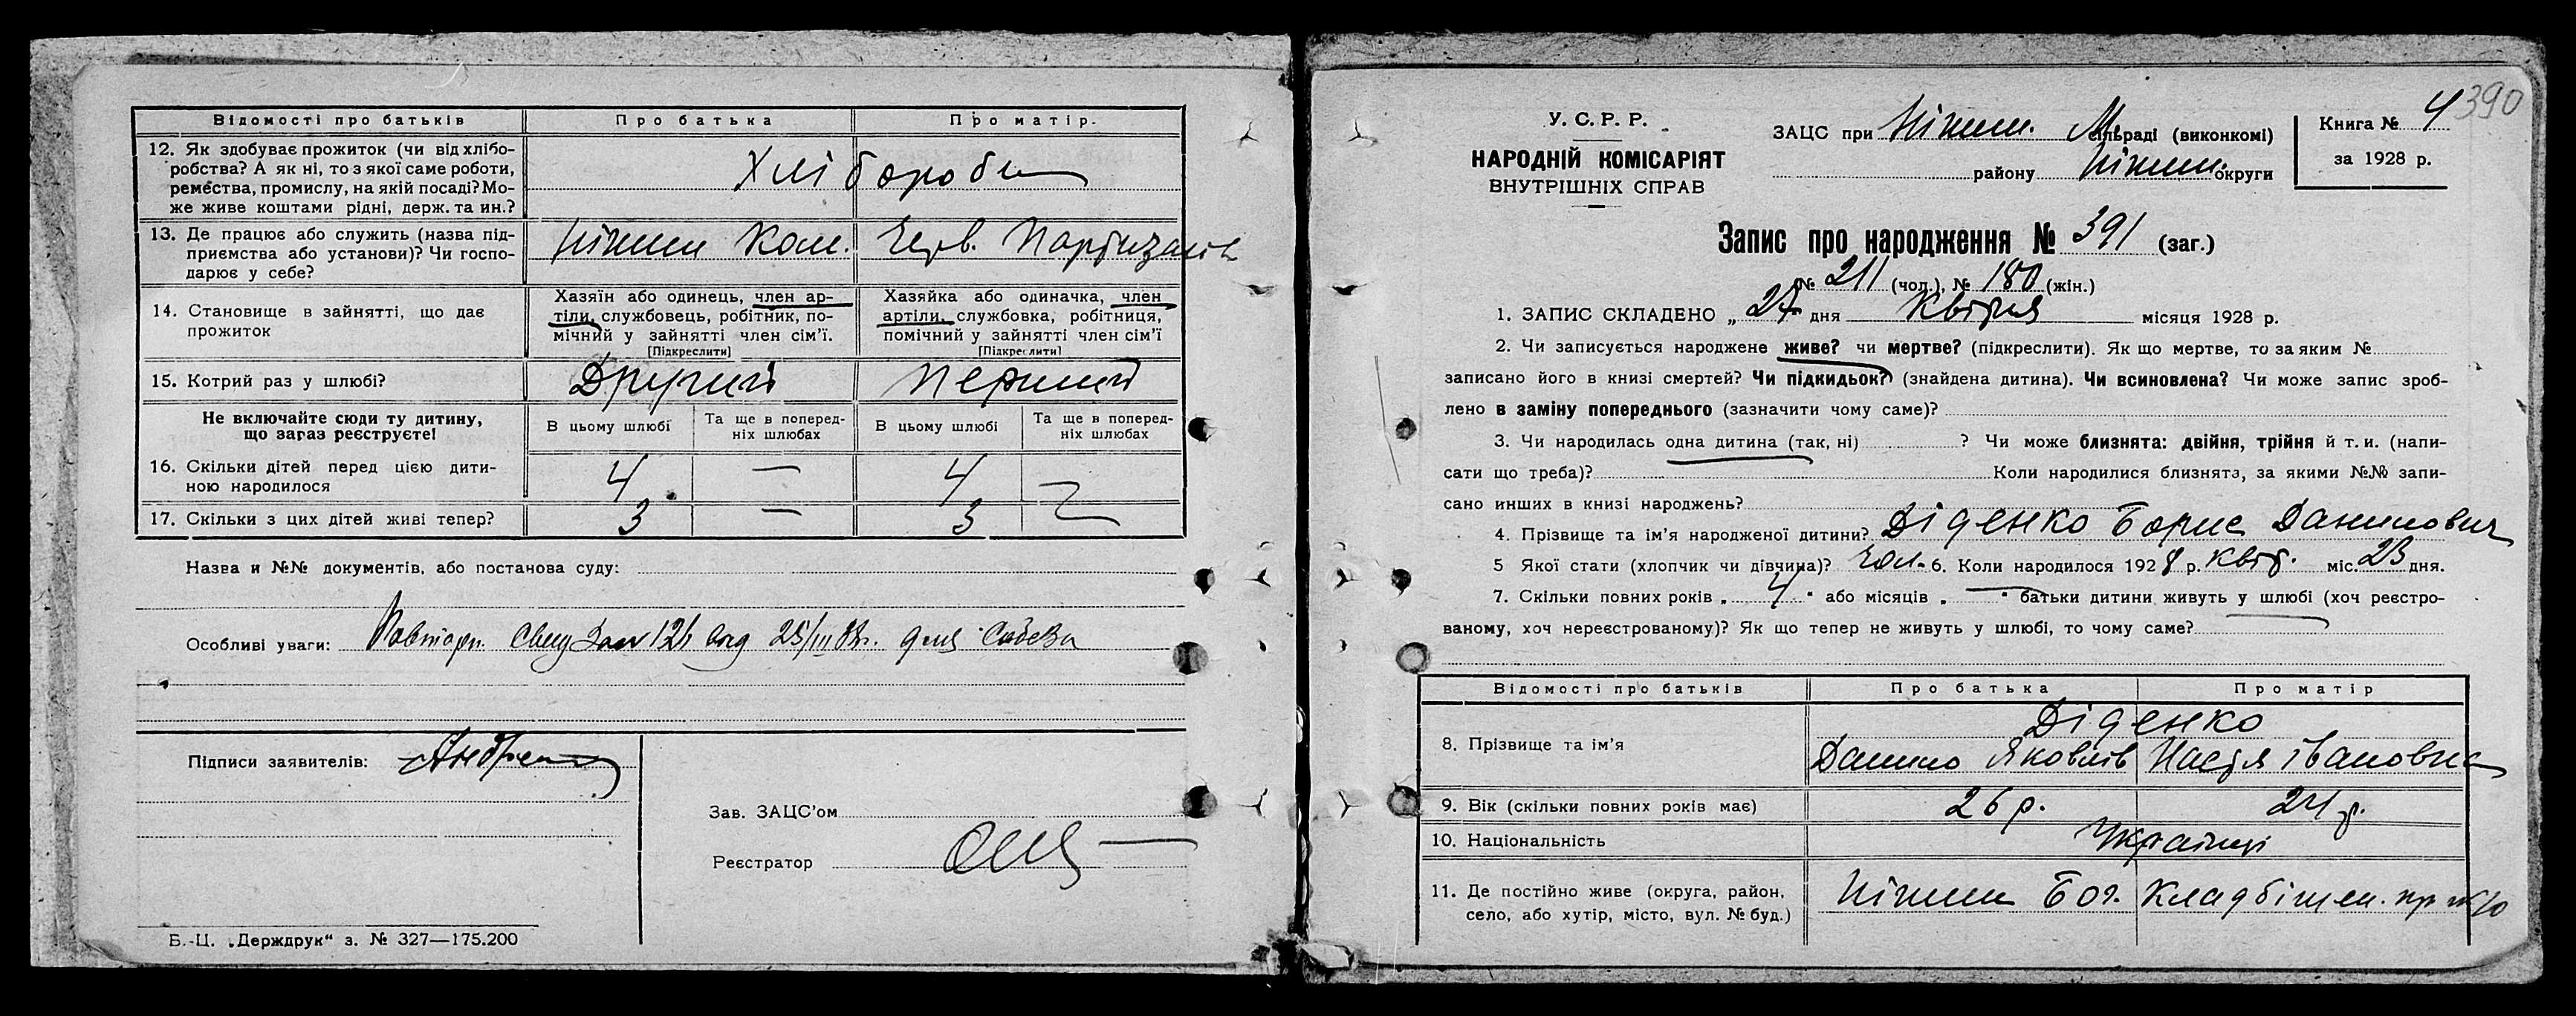 Відомості про батьків Про батька Про матір.
12. Як здобуває прожиток (чи від хлібо-
робства? А як ні, то з якої саме роботи,
ремества, промислу, на якій посаді? Мо-
же живе коштами рідні, держ. та ин.?
Хлібороби
13. Де працює або служить (назва під-
приємства або установи)? Чи госпо-
дарює у себе?
Ніжин Ком. Черв. Партизанів
14. Становище в зайнятті, що дає
прожиток
Хазяїн або одинець, член ар-
тілі, службовець, робітник, по-
мічний у зайнятті член сім’ї.
[Підкреслити]
Хазяйка або одиначка, член
артілі, службовка, робітниця,
помічний у зайнятті член сім’ї
[Підкреслити]
15. Котрий раз у шлюбі? Другий Перший
Не включайте сюди ту дитину,
що зараз реєструєте!
В цьому шлюбі
Та ще в поперед-
ніх шлюбах
В цьому шлюбі
Та ще в поперед-
ніх шлюбах
16. Скільки дітей перед цією дити-
ною народилося
4 — 4 —
17. Скільки з цих дітей живі тепер? 3 — 3 —
Назва и №№ документів, або постанова суду:
Особливі уваги: Повторн. 25/III
Підписи заявителів:
Зав. ЗАЦС’ом
Реєстратор
Б.-Ц. „Держдрук“ з. № 327—175.200
390
У. С. Р. Р.
НАРОДНІЙ КОМІСАРІЯТ
ВНУТРІШНІХ СПРАВ
ЗАЦС при Ніжин. М сільраді (виконкомі)
району Ніжин. округи
Книга № 4
за 1928 р.
Запис про народження № 391 (заг.)
№ 211 (чол.), № 180 (жін.)
1. ЗАПИС СКЛАДЕНО „ 27 дня Квітня місяця 1928 р.
2. Чи записується народжене живе? чи мертве? (підкреслити). Як що мертве, то за яким №
записано його в книзі смертей? Чи підкидьок? (знайдена дитина). Чи всиновлена? Чи може запис зроб-
лено в заміну попереднього (зазначити чому саме)?
3. Чи народилась одна дитина (так, ні) ? Чи може близнята: двійня, трійня й т. и. (напи-
сати що треба)? Коли народилися близнята, за якими №№ запи-
сано инших в книзі народжень?
4. Прізвище та ім’я народженої дитини? Діденко Борис Данилович
5 Якої стати (хлопчик чи дівчина)? Чол. 6. Коли народилося 1928 р. Квіт. міс. 23 дня.
7. Скільки повних років „ 4 “ або місяців „ — “ батьки дитини живуть у шлюбі (хоч реєстро-
ваному, хоч нереєстрованому)? Як що тепер не живуть у шлюбі, то чому саме?
Відомості про батьків Про батька Про матір
8. Прізвище та ім’я
Діденко
Данило Яковлів Настя Івановна
9. Вік (скільки повних років має) 26 р. 24 р.
10. Національність Українці
11. Де постійно живе (округа, район,
село, або хутір, місто, вул. № буд.)
Ніжин Бог. Кладбіщен.